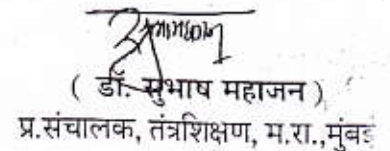 ( डॉ. सुभाष महाजन )
प्र.संचालक, तंत्रशिक्षण, म.रा.,मुंबई